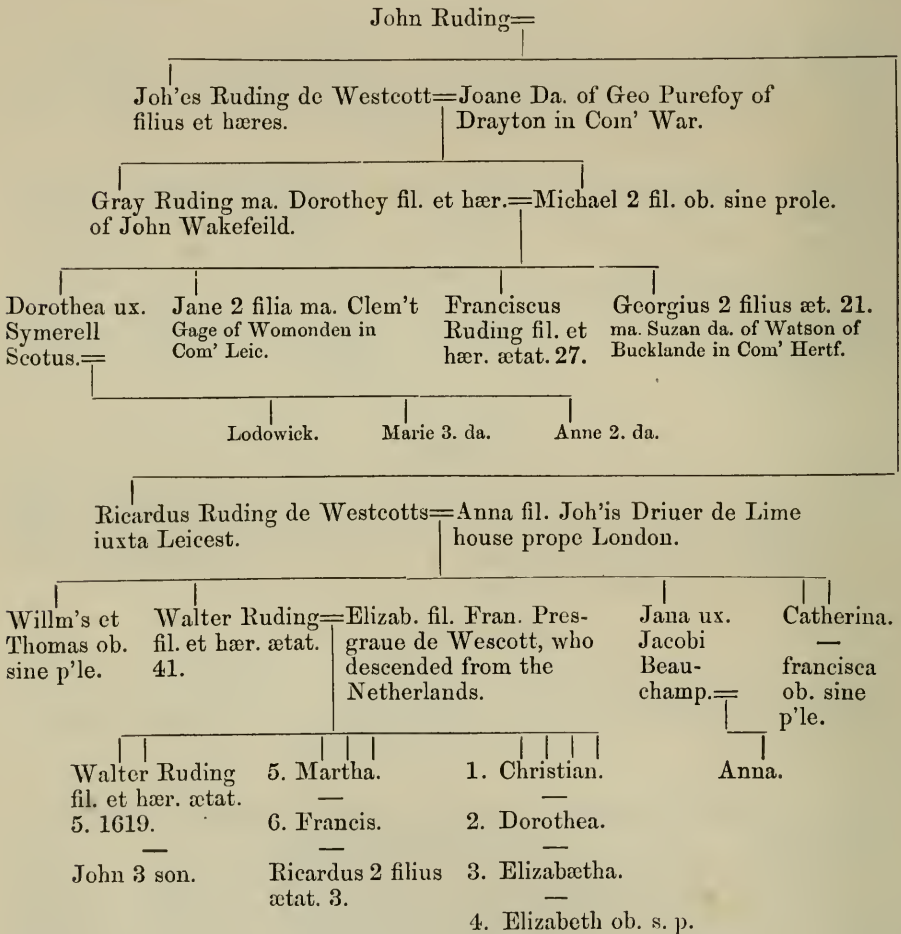 John Ruding=
Joh'es Ruding de Westcott=Joane Da. of Geo Purefoy of
filius et hæres. Drayton in Com' War.
Gray Ruding ma. Dorothey fil. et hær.=Michael 2 fil. ob. sine prole.
of John Wakefeild.
Dorothea ux.
Symerell
Scotus.=
Jane 2 filia ma. Clem't
Gage of Womonden in
Com' Leic.
Franciscus
Ruding fil. et
hær. ætat. 27.
Georgius 2 filius æt. 21.
ma. Suzan da. of Watson of
Bucklande in Com' Hertf.
Lodowick. Marie 3. da. Anne 2. da.
Ricardus Ruding de Westcotts=Anna fil. Joh'is Driuer de Lime
iuxta Leicest. house prope London.
Willm's et
Thomas ob.
sine p'le.
Walter Ruding=
fil. et hær. ætat.
41.
Elizab. fil. Fran. Pres-
graue de Wescott, who
descended from the
Netherlands.
Jana ux.
Jacobi
Beau-
champ.=
Catherina.
—
francisca
ob. sine
p'le.
Walter Ruding
fil. et hær. ætat.
5. 1619.
—
John 3 son.
5. Martha.
—
6. Francis.
—
Ricardus 2 filius
ætat. 3.
1. Christian.
—
2. Dorothea.
—
3. Elizabætha.
—
4. Elizabeth ob. s. p.
Anna.